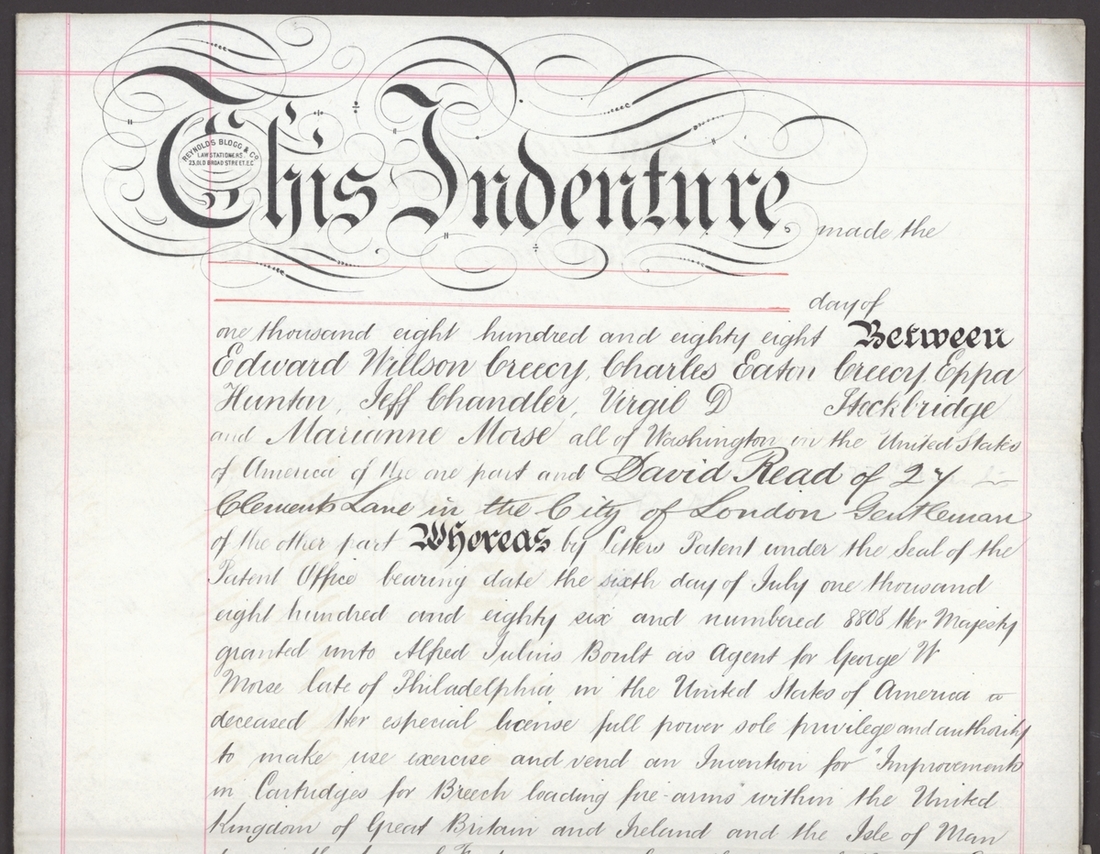 This Indenture made the
REYNOLDS BLOGG & Co
LAW STATIONERS
23, OLD BROAD STREET, E.C
day of
one thousand eight hundred and eighty eight Between
Edward Willson Creecy, Charles Eaton Creecy, Eppa
Hunton, Jeff Chandler, Virgil D Stockbridge
and Marianne Morse all of Washington in the United States
of America of the one part and David Read of 27
Clements Lane in the City of London Gentleman
of the other part Whereas by Letters Patent under the Seal of the
Patent Office bearing date the sixth day of July one thousand
eight hundred and eighty six and numbered 8808 Her Majesty
granted unto Alfred Julius Boult as Agent for George W
Morse late of Philadelphia in the United States of America
deceased Her especial license full power sole privilege and authority
to make use exercise and vend an Invention for "Improvements
in Cartridges for Breech loading fire-arms" within the United
Kingdom of Great Britain and Ireland and the Isle of Man